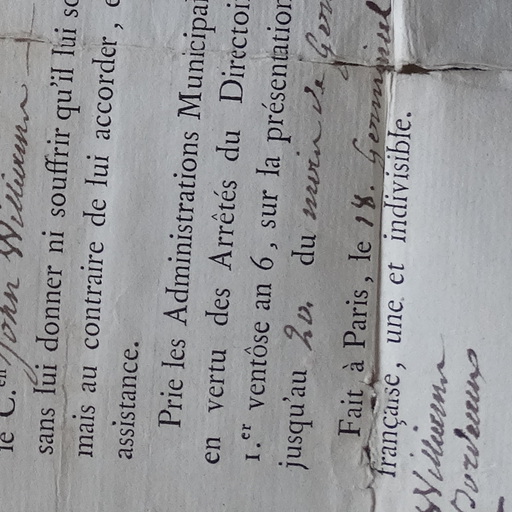 le C.en John Williams
sans lui donner ni souffrir qu'il lui so
mais au contraire de lui accorder, e
assistance.
Prie les Administrations Municipal
en vertu des Arrêtés du Directoir
1.er ventôse an 6, sur la présentation
jusqu'au 20. du mois de Ger
Fait à Paris, le 18. Germinal
française, une et indivisible.
Williams
Bordeaux